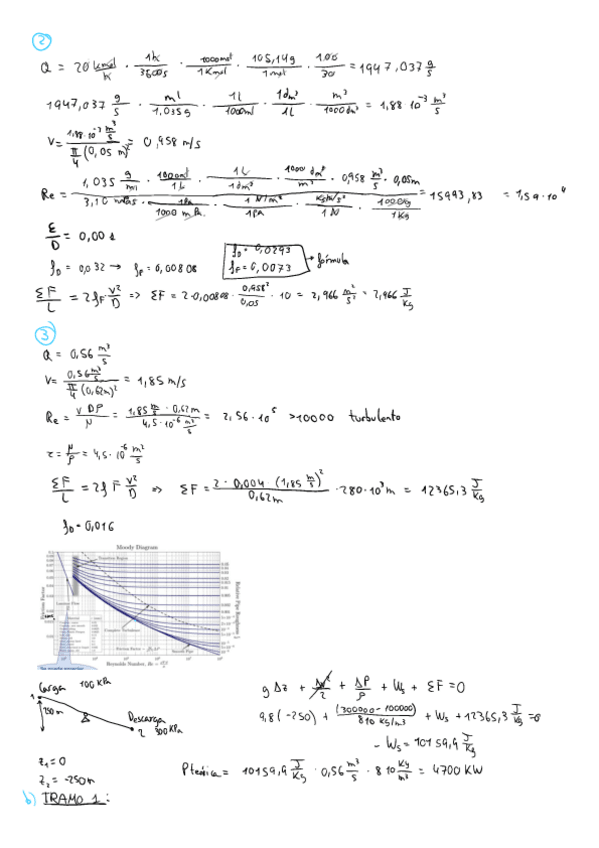 2
Q = 20 kmol/h · 1h/3600s · 1000mol/1Kmol · 105,14g/1mol · 100/30 = 1947,037 g/s
1947,037 g/s · ml/1,035g · 1L/1000ml · 1dm³/1L · m³/1000dm³ = 1,88·10⁻³ m³/s
V = 1,88·10⁻³ m³/s / π/4 (0,05 m)² = 0,958 m/s
Re = 1,035 g/ml · 1000ml/1L · 1L/1dm³ · 1000 dm³/m³ · 0,958 m³/s · 0,05m / 3,10 mPas · 1Pa/1000 mPa · 1 N/m²/1Pa · Kgm/s²/1N · 1000g/1Kg = 15993,83 = 1,59·10⁴
ε/D = 0,001
f_D = 0,032 → f_F = 0,00808
f_D = 0,0293
f_F = 0,0073
fórmula
ΣF/L = 2f_F V²/D => ΣF = 2·0,00808 · 0,958²/0,05 · 10 = 2,966 m²/s² = 2,966 J/Kg
3
Q = 0,56 m³/s
V = 0,56 m³/s / π/4 (0,62m)² = 1,85 m/s
Re = V D ρ/μ = 1,85 m/s · 0,62m / 4,5·10⁻⁶ m²/s = 2,56·10⁵ >10000 turbulento
τ = μ/ρ = 4,5·10⁻⁶ m²/s
ΣF/L = 2f F V²/D => ΣF = 2·0,004 (1,85 m/s)²/0,62m · 280·10³ m = 12365,3 J/Kg
f_D = 0,016
Moody Diagram
Transition Region
Laminar Flow
Complete Turbulence
Smooth Pipe
Friction Factor
Relative Pipe Roughness
Reynolds Number, Re =
Carga 100 KPa
1
250m
Descarga
2 300 KPa
z₁ = 0
z₂ = -250m
g Δz + Δv²/2 + ΔP/ρ + Ws + ΣF = 0
9,8 (-250) + (300000 - 100000)/810 KG/m3 + Ws + 12365,3 J/Kg = 0
- Ws = 10159,9 J/Kg
Pteórica = 10159,9 J/Kg · 0,56 m³/s · 810 Kg/m³ = 4700 KW
b) TRAMO 1: